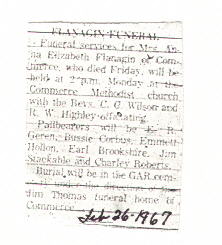 FLANAGIN FUNERAL
Funeral services for Mrs. An-
na Elizabeth Flanagin of Com-
merce, who died Friday, will be
held at 2 p.m. Monday at the
Commerce Methodist church
with the Revs. C. G. Wilson and
R. W. Highley officating.
Pallbearers will be E. R.
Geren, Bussie Corbus, Emmett
Hollon, Earl Brookshire, Jim
Stackable and Charley Roberts.
Burial will be in the GAR cem-
under the direction of
Jim Thomas funeral home of
Commerce.
Feb-26-1967